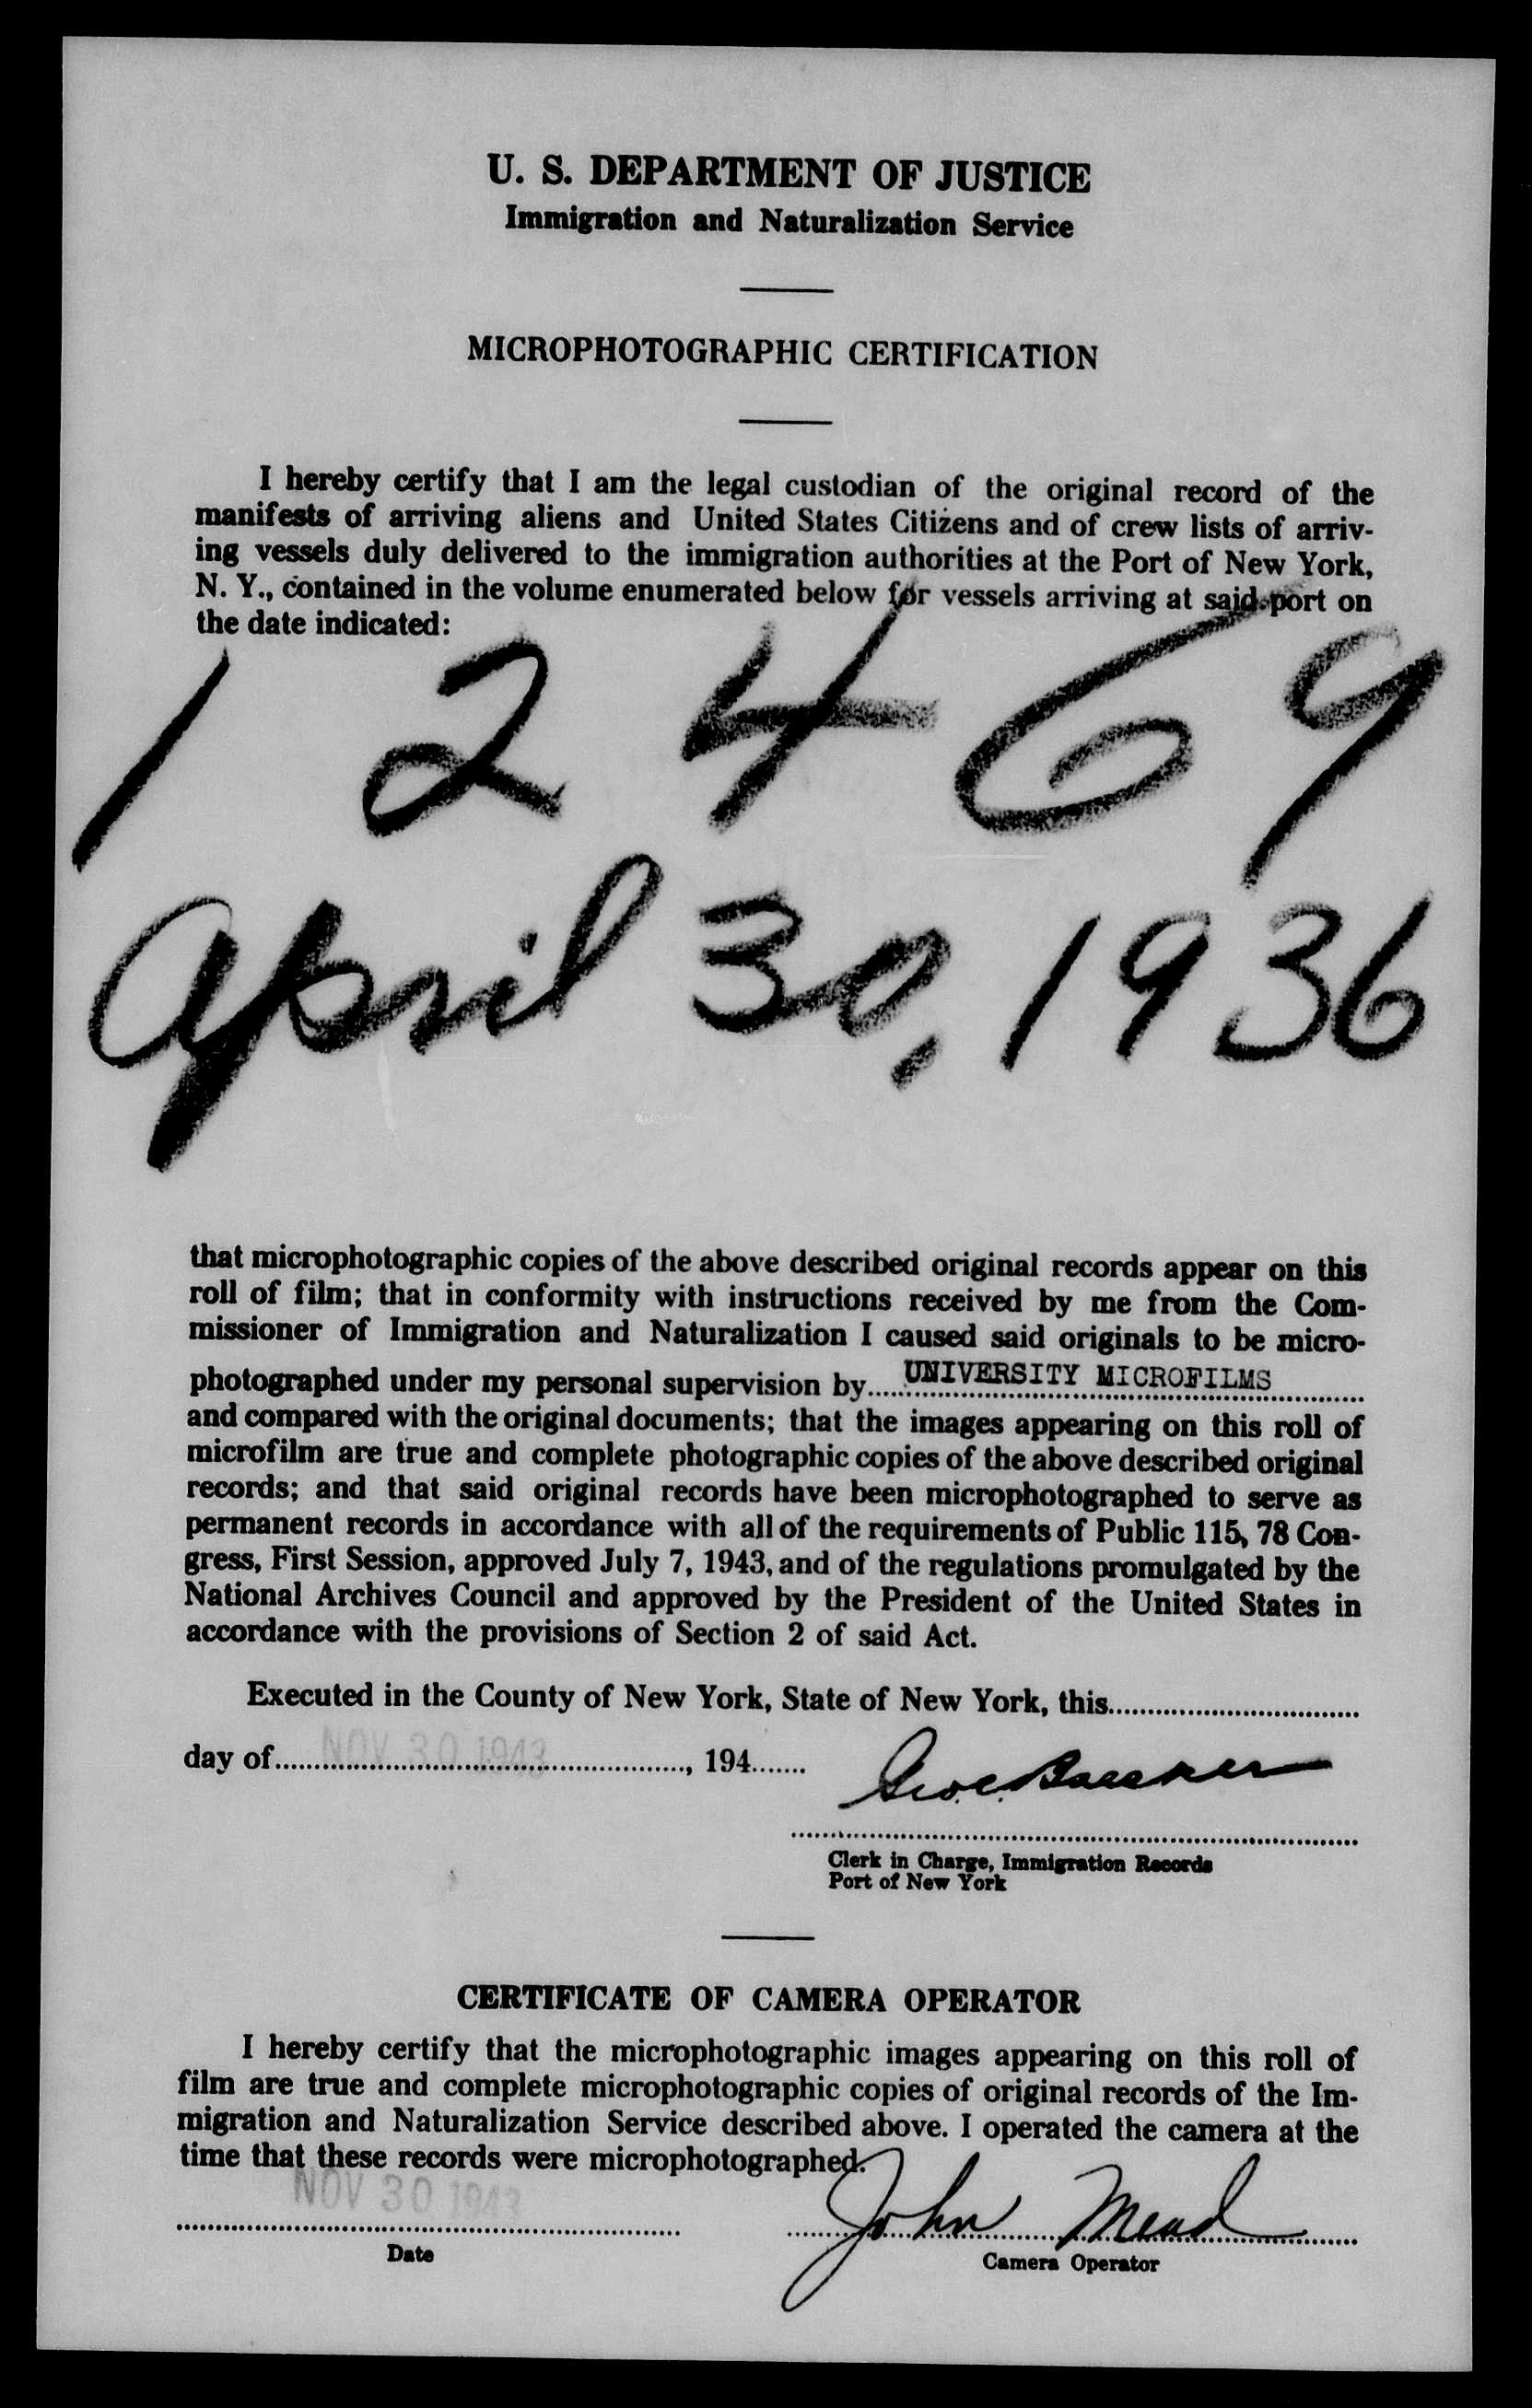 U. S. DEPARTMENT OF JUSTICE
Immigration and Naturalization Service
MICROPHOTOGRAPHIC CERTIFICATION
I hereby certify that I am the legal custodian of the original record of the
manifests of arriving aliens and United States Citizens and of crew lists of arriv-
ing vessels duly delivered to the immigration authorities at the Port of New York,
N. Y., contained in the volume enumerated below for vessels arriving at said port on
the date indicated:
12469
April 30, 1936
that microphotographic copies of the above described original records appear on this
roll of film; that in conformity with instructions received by me from the Com-
missioner of Immigration and Naturalization I caused said originals to be micro-
photographed under my personal supervision by UNIVERSITY MICROFILMS
and compared with the original documents; that the images appearing on this roll of
microfilm are true and complete photographic copies of the above described original
records; and that said original records have been microphotographed to serve as
permanent records in accordance with all of the requirements of Public 115, 78 Con-
gress, First Session, approved July 7, 1943, and of the regulations promulgated by the
National Archives Council and approved by the President of the United States in
accordance with the provisions of Section 2 of said Act.
Executed in the County of New York, State of New York, this
day of NOV 30 1943, 194
Clerk in Charge, Immigration Records
Port of New York
CERTIFICATE OF CAMERA OPERATOR
I hereby certify that the microphotographic images appearing on this roll of
film are true and complete microphotographic copies of original records of the Im-
migration and Naturalization Service described above. I operated the camera at the
time that these records were microphotographed.
NOV 30 1943 John Mead
Date Camera Operator